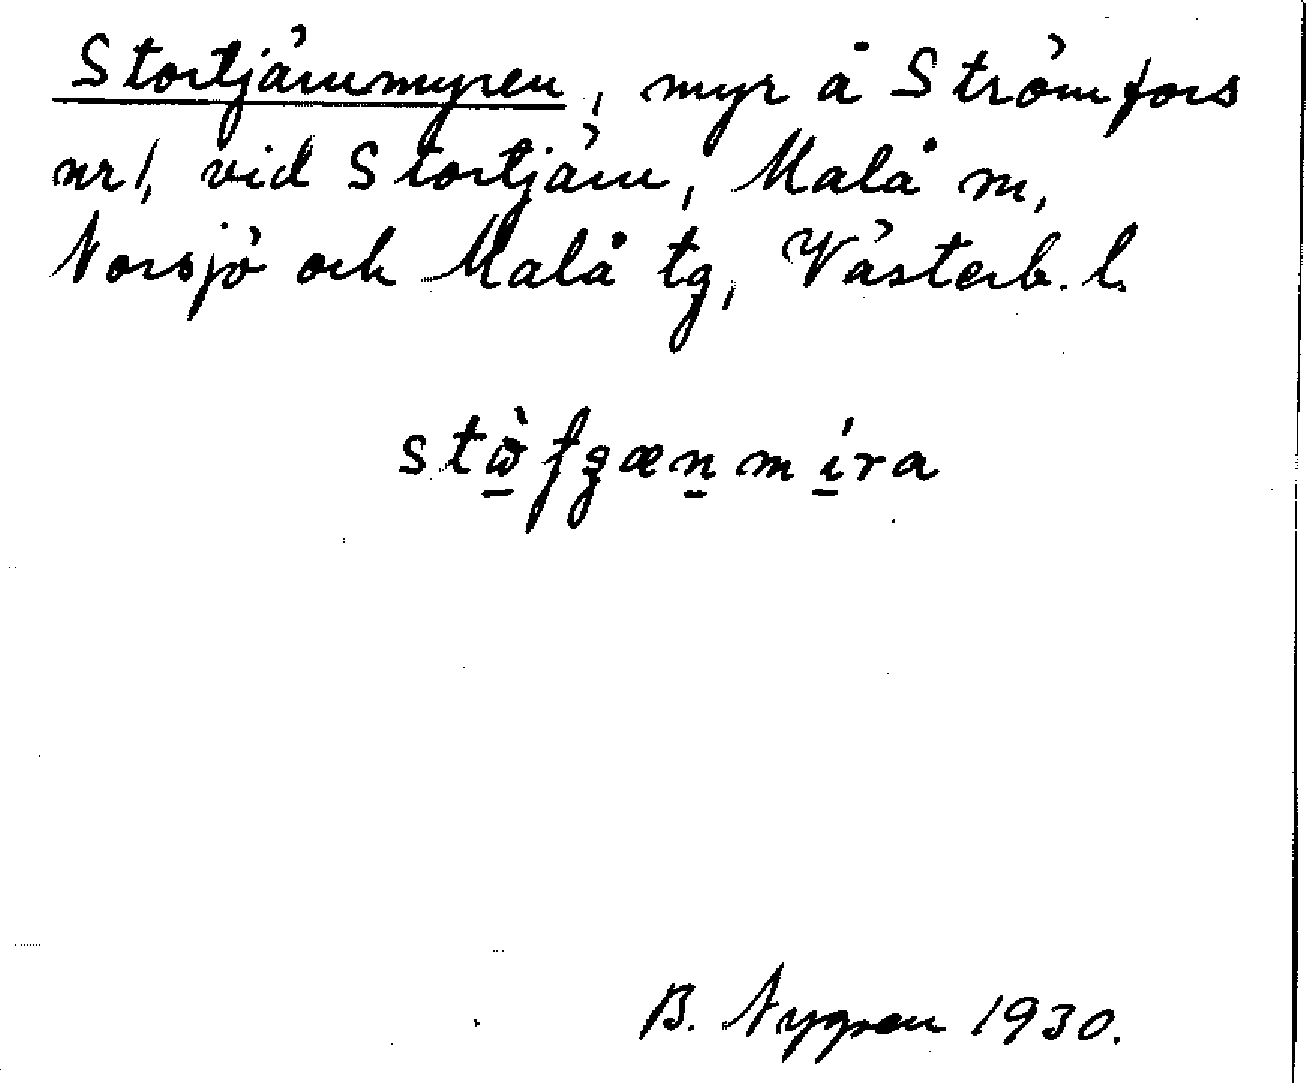 Stortjärnmyren, myr å Strömfors
nr 1, vid Stortjärn, Malå m,
Norsjö och Malå tg, Västerb. l.
B. Nygren 1930.